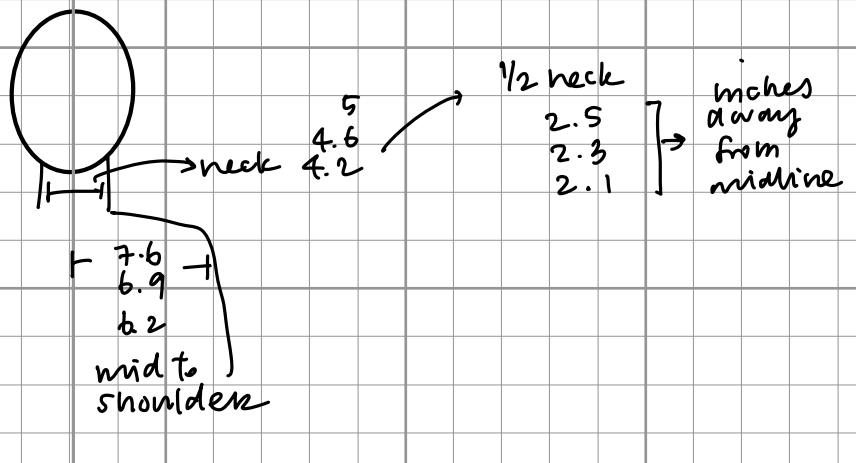 1/2 neck
5
4.6
neck 4.2
2.5
2.3
2.1
inches
away
from
midline
7.6
6.9
6.2
mid to
shoulder